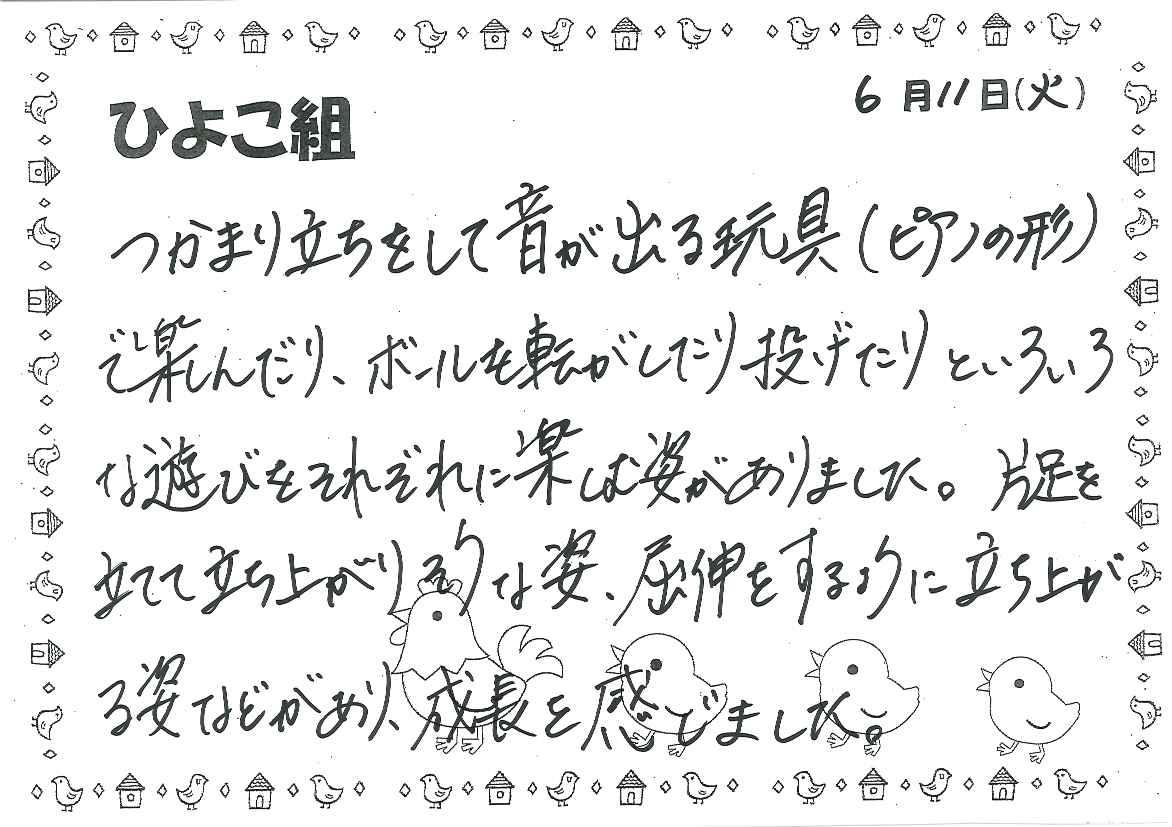 6月11日(火)
ひよこ組
つかまり立ちをして音が出る玩具(ピアノの形)
で楽しんだり、ボールを転がしたり投げたりといろいろ
な遊びをそれぞれに楽しむ姿がありました。片足を
立てて立ち上がりそうな姿、屈伸をするように立ち上が
る姿などがあり、成長を感じました。